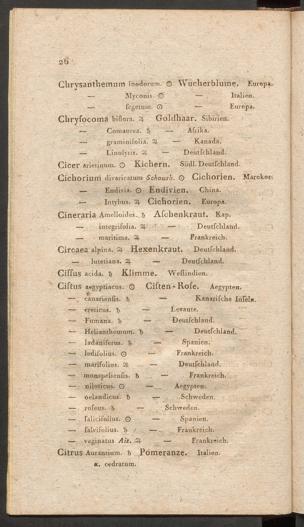 26
Chrysanthemum inodorum. ☉ Wucherblume. Europa.
— Myconis. ☉ — Italien.
— segetum. ☉ — Europa.
Chrysocoma biflora. ♃ Goldhaar. Sibirien.
— Comaurea. ♄ — Afrika.
— graminifolia. ♃ — Kanada.
— Linosyris. ♃ — Deutſchland.
Cicer arietinum. ☉ Kichern. Südl. Deutſchland.
Cichorium divaricatum Schousb. ☉ Cichorien. Marokos.
— Endivia. ☉ Endivien. China.
— Intybus. ♃ Cichorien. Europa.
Cineraria Amelloides. ♄ Aſchenkraut. Kap.
— integrifolia. ♃ — Deutſchland.
— maritima. ♃ — Frankreich.
Circaea alpina. ♃ Hexenkraut. Deutſchland.
— lutetiana. ♃ — Deutſchland.
Ciſſus acida. ♄ Klimme. Weſtindien.
Ciſtus aegyptiacus. ☉ Ciſten-Roſe. Aegypten.
— canariensis. ♄ — Kanariſche Inſeln.
— creticus. ♄ — Levante.
— Fumana. ♄ — Deutſchland.
— Helianthemum. ♄ — Deutſchland.
— ladaniferus. ♄ — Spanien.
— ledifolius. ☉ — Frankreich.
— marifolius. ♃ — Deutſchland.
— monspeliensis. ♄ — Frankreich.
— niloticus. ☉ — Aegypten.
— oelandicus. ♄ — Schweden.
— roſeus. ♄ — Schweden.
— ſalicifolius. ☉ — Spanien.
— ſalvifolius. ♄ — Frankreich.
— vaginatus Ait. ♃ — Frankreich.
Citrus Aurantium. ♄ Pomeranze. Italien.
α. cedratum.